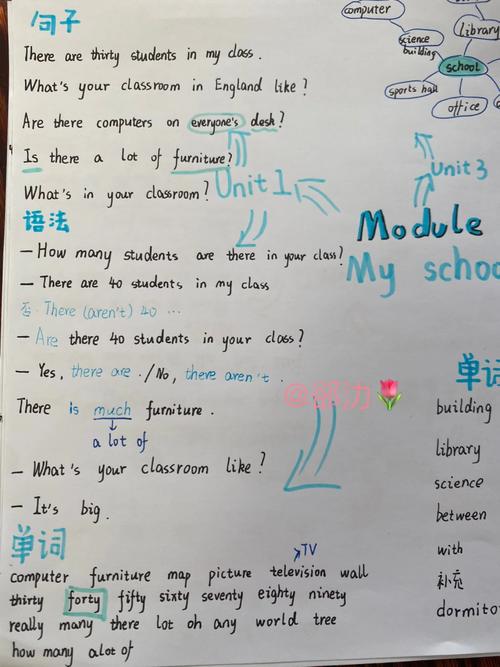 句子
There are thirty students in my class.
What's your classroom in England like?
Are there computers on everyone's desk?
Is there a lot of furniture?
What's in your classroom?
Unit 1
语法
— How many students are there in your class?
— There are 40 students in my class
否 There (aren't) 40 ...
— Are there 40 students in your class?
— Yes, there are. / No, there aren't.
There is much furniture.
a lot of
— What's your classroom like?
— It's big.
单词
TV
computer furniture map picture television wall
thirty forty fifty sixty seventy eighty ninety
really many there lot oh any world tree
how many alot of
computer
library
science building
school
sports hall
office
Unit 3
Module
My schoo
单词
building
library
science
between
with
补充
dormito